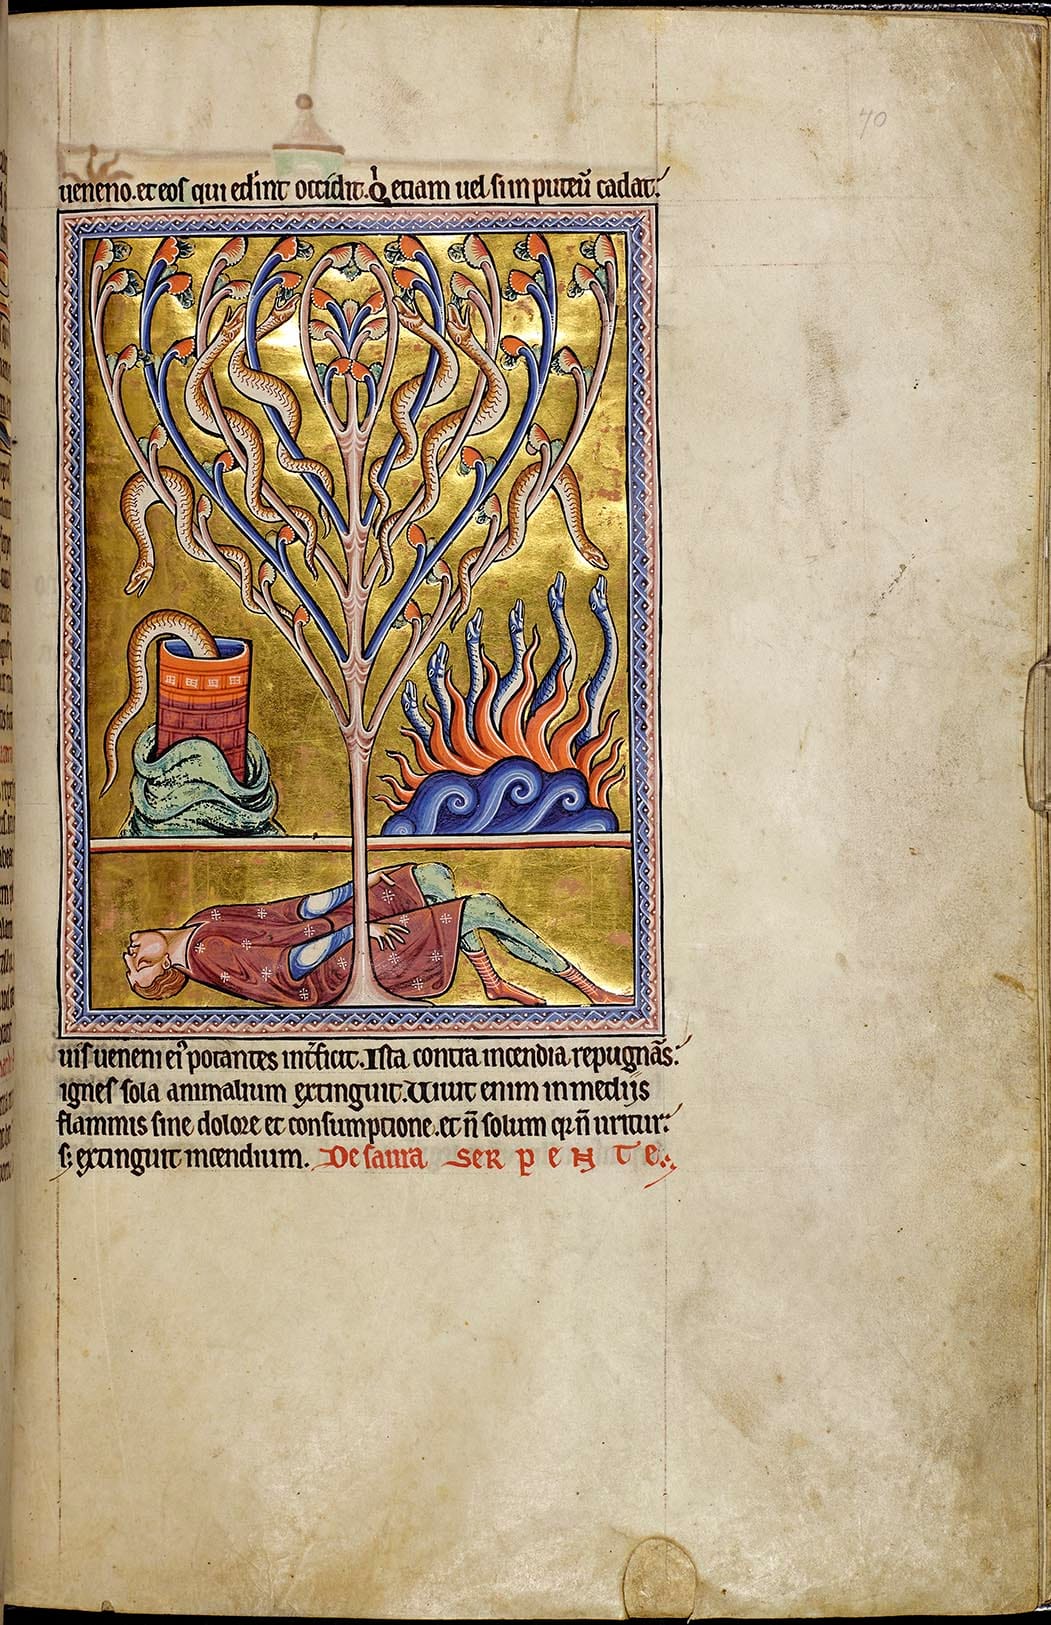 70
ueneno. et eos qui ederint occidit. Q etiam uel si in puteū cadat:
uis ueneni ei potantes int̄ficit. Ista contra incendia repugnās.
ignes sola animalium extinguit. Uiuit enim in medijs
flammis sine dolore et consumptione. et n̄ solum qr n̄ uritur:
s; extinguit incendium. De saura SERPENTE.